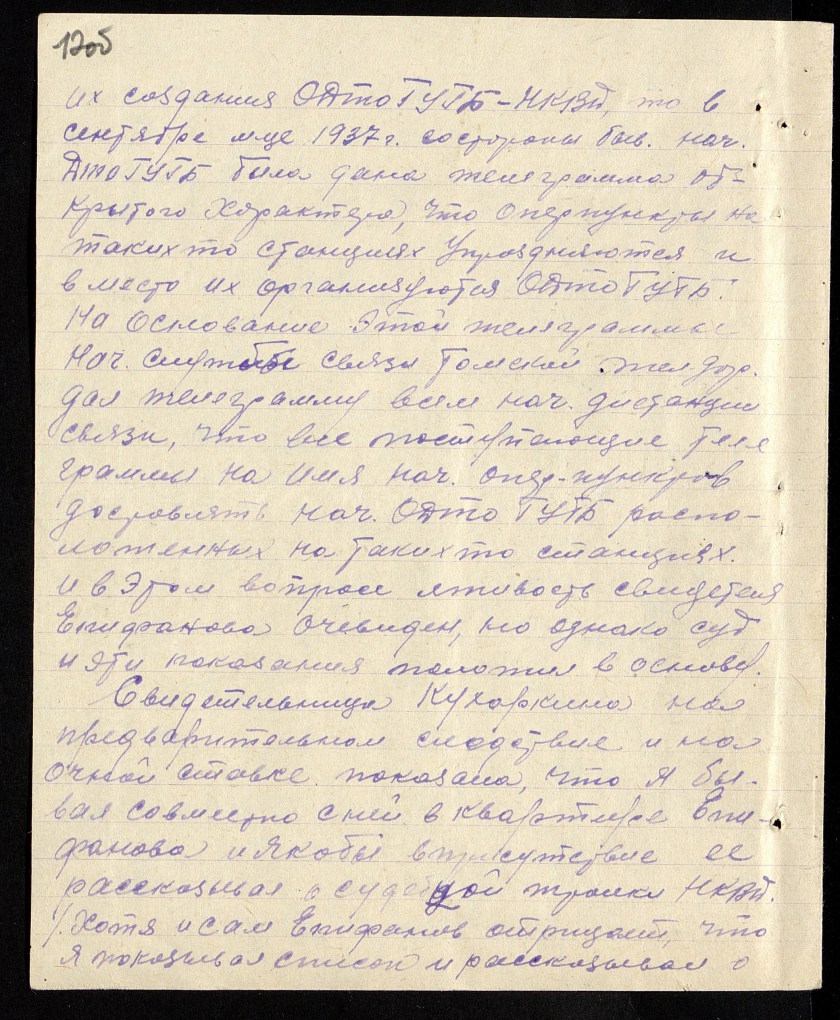 12об
их создания ОДТОГУГБ-НКВД, то в
сентябре м-це 1937г. состороны быв. нач.
ДТОГУГБ была дана телеграмма от-
крытого характера, что оперпункты на
такихто станциях упраздняются и
вместо их организуются ОДТОГУГБ.
На основание этой телеграммы
нач. службы связи Томской жел-дор.
дал телеграмму всем нач. дистанции
связи, что все поступающие теле
граммы на имя нач. опер-пунктов
доставлять нач. ОДТО ГУГБ распо-
ложенных на такихто станциях.
И в этом вопросе лживость свидетеля
Епифанова очевиден, но однако суд
и эти показания положил в основу.
Свидетельница Кухаркина на
предварительном следствие и на
очной ставке показала, что я бы-
вал совместно с ней в квартире Епи-
фанова и якобы вприсутствие ее
рассказывал о судебной тройки НКВД.
/. Хотя и сам Епифанов отрицает, что
я показывал список и рассказывал о